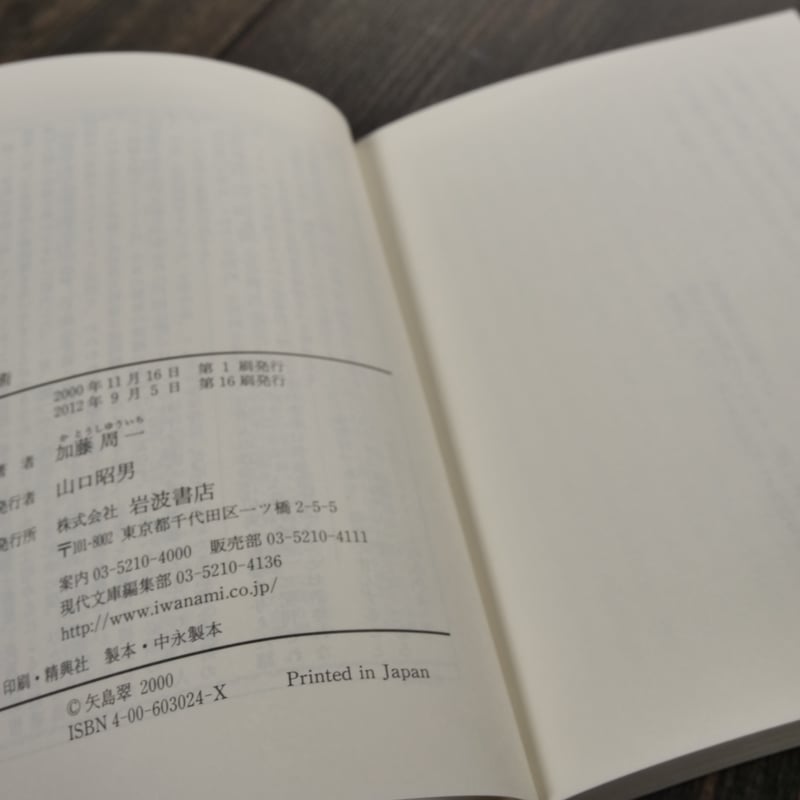 術
2000年11月16日 第1刷発行
2012年9月5日 第16刷発行
かとうしゅういち
著者 加藤周一
発行者 山口昭男
発行所 株式会社 岩波書店
〒101-8002 東京都千代田区一ツ橋2-5-5
案内 03-5210-4000 販売部 03-5210-4111
現代文庫編集部 03-5210-4136
http://www.iwanami.co.jp/
印刷・精興社 製本・中永製本
© 矢島翠 2000
ISBN 4-00-603024-X Printed in Japan